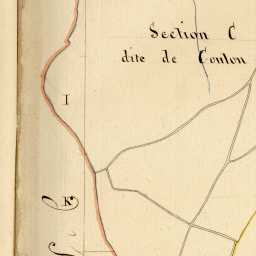 Section C
dite de Conton
I
K